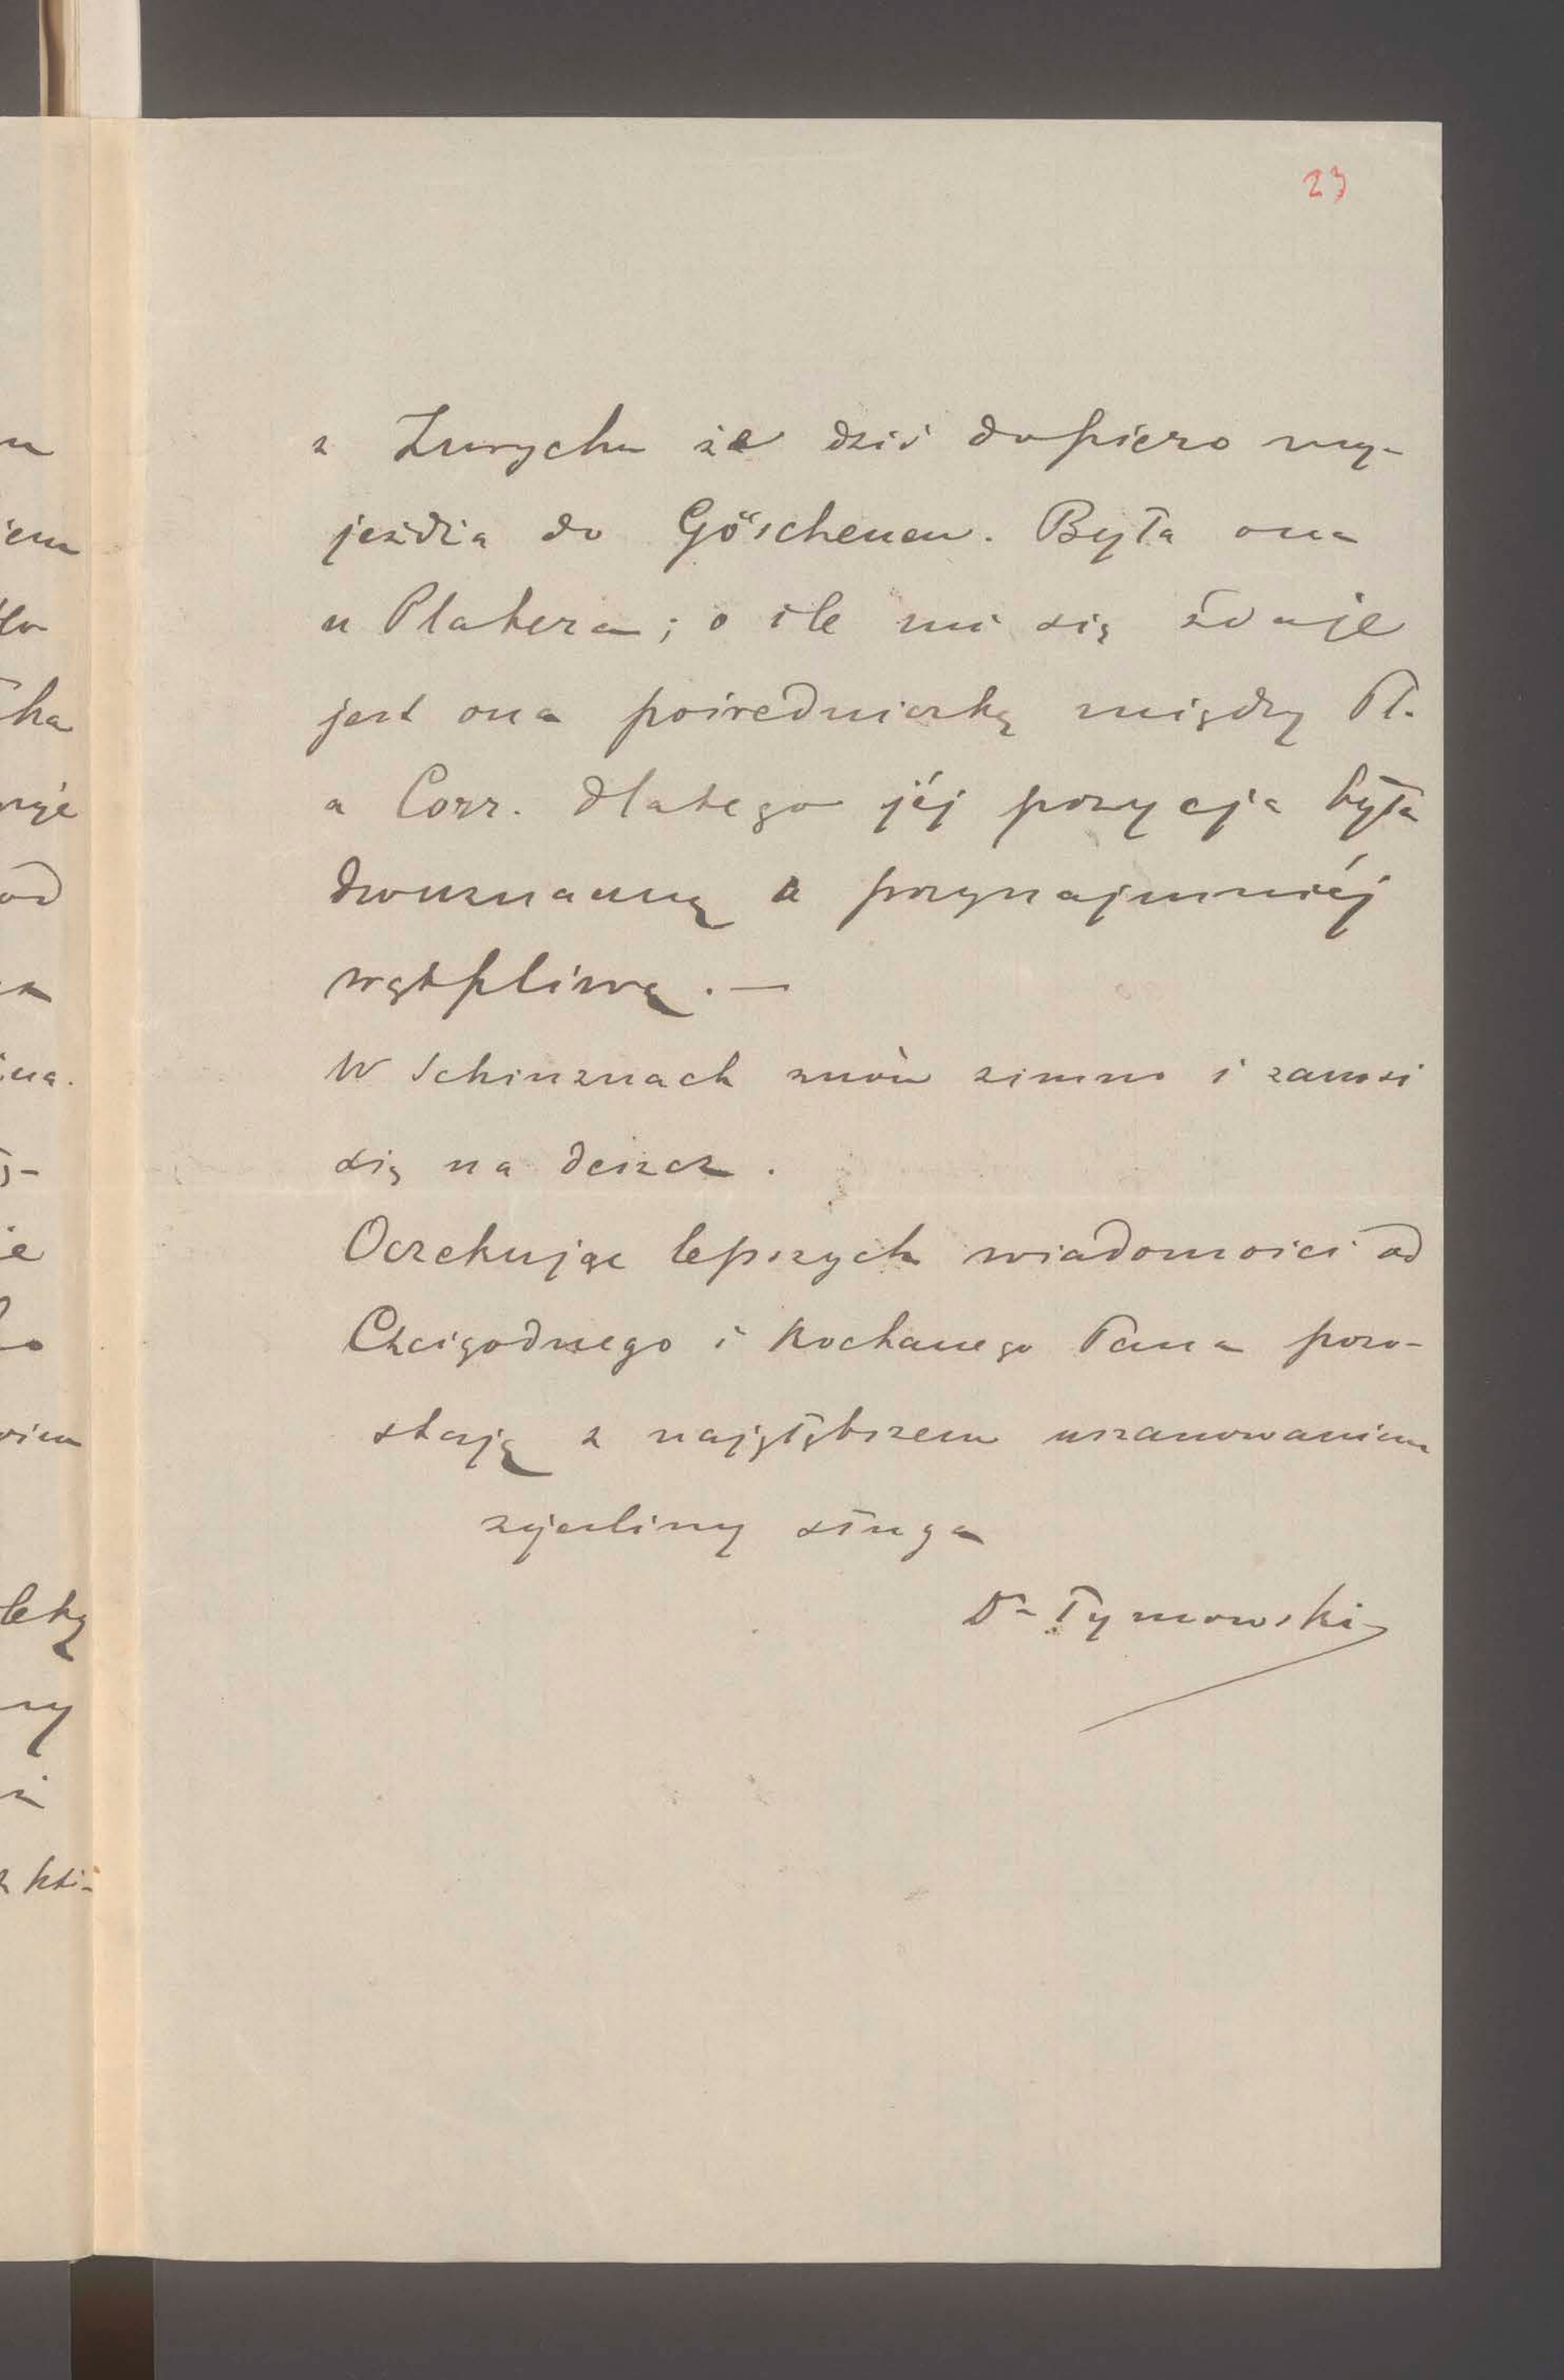 23
z Zurychu że dziś dopiero wy-
jeżdża do Göschenen. Była ona
u Platera; o ile mi się zdaje
jest ona pośredniczką między Pl.
a Corr. dlatego jéj pozycja była
dwuznaczną a przynajmniéj
wątpliwą. —
W Schinznach znów zimno i zanosi
się na deszcz.
Oczekując lepszych wiadomości od
Czcigodnego i Kochanego Pana pozo-
staję z najgłębszem uszanowaniem
życzliwy sługa
Dr Tymowski